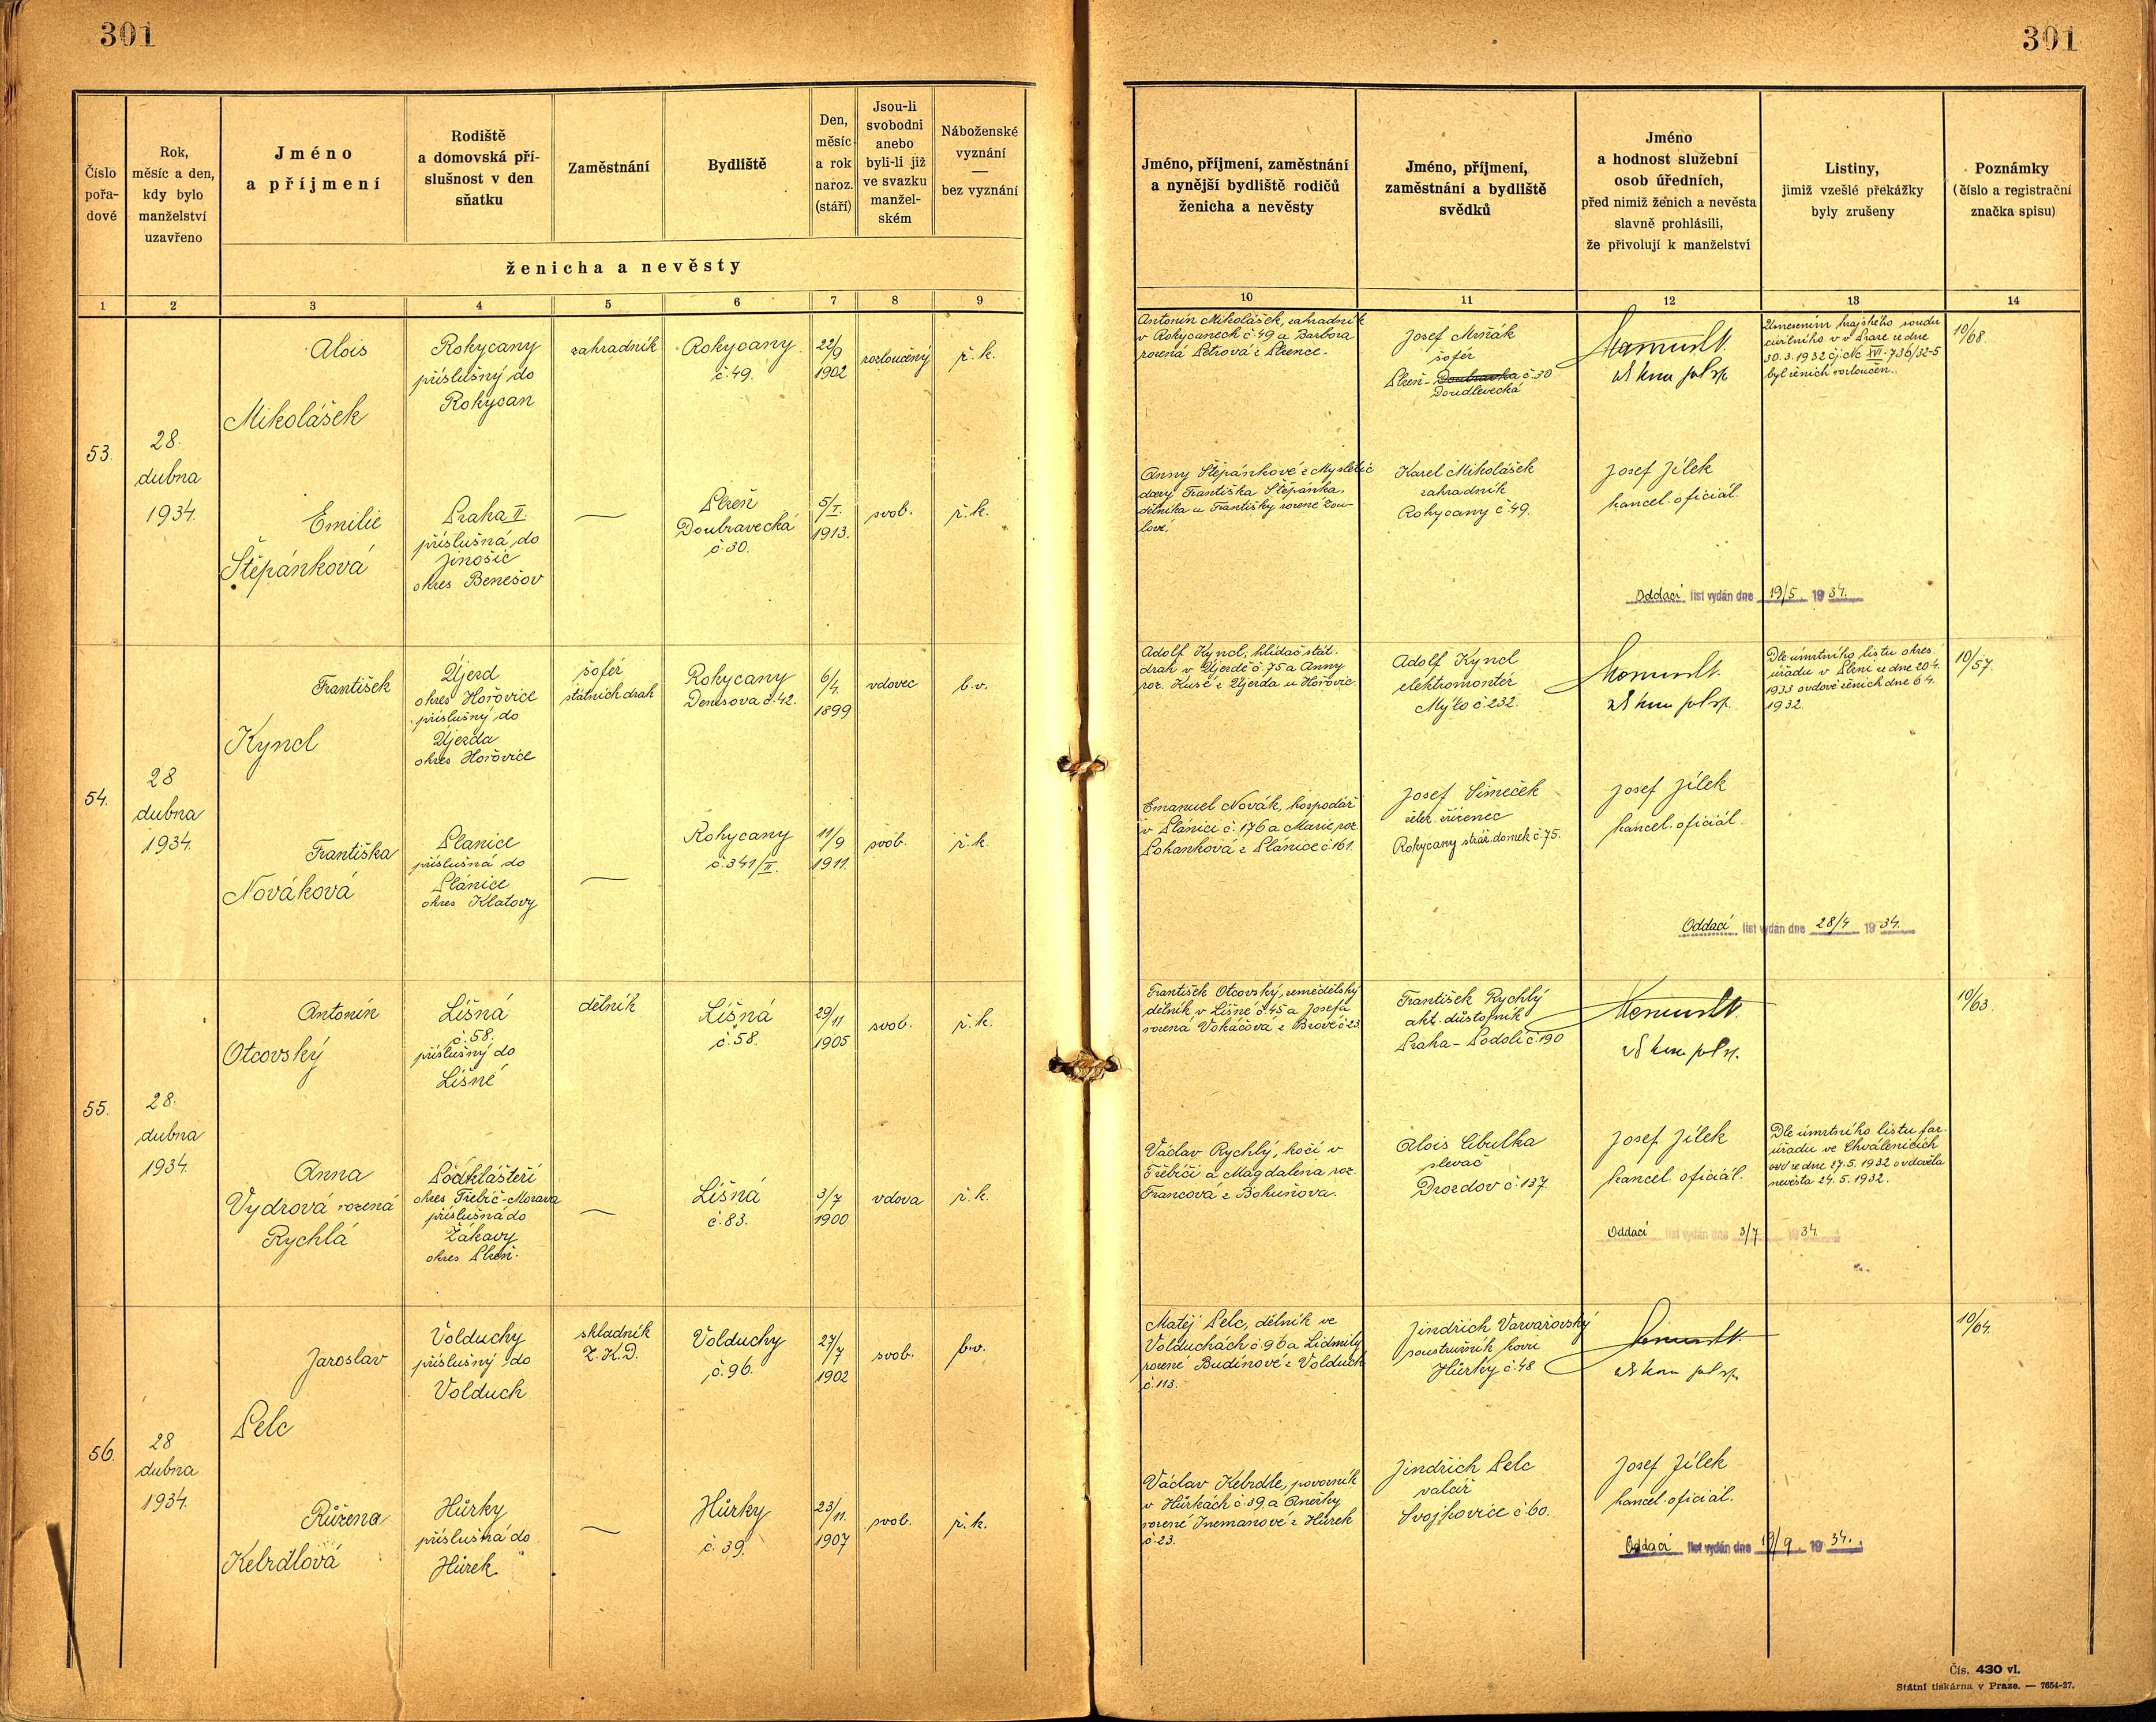 301
301
Číslo pořa-dové
Rok, měsíc a den, kdy bylo manželství uzavřeno
Jméno a příjmení
Rodiště a domovská pří-slušnost v den sňatku
Zaměstnání
Bydliště
Den, měsíc a rok naroz. (stáří)
Jsou-li svobodni anebo byli-li již ve svazku manžel-ském
Náboženské vyznání — bez vyznání
ženicha a nevěsty
Jméno, příjmení, zaměstnání a nynější bydliště rodičů ženicha a nevěsty
Jméno, příjmení, zaměstnání a bydliště svědků
Jméno a hodnost služební osob úředních, před nimiž ženich a nevěsta slavně prohlásili, že přivolují k manželství
Listiny, jimiž vzešlé překážky byly zrušeny
Poznámky (číslo a registrační značka spisu)
1 2 3 4 5 6 7 8 9 10 11 12 13 14
53.
28.
dubna
1934.
Alois
Mikolášek
Rokycany
příslušný do
Rokycan
zahradník
Rokycany
č. 49.
22/9
1902
rozloučený
ř. k.
Antonín Mikolášek, zahradník
v Rokycanech č. 49 a Barbora
rozená Petrová z Plzence.
Josef
šofér
Plzeň - Doubravka č. 30
Doudlevecká
Usnesením krajského soudu
civilního v Praze ze dne
30. 3. 1932 čj. Nc XVI - 736/32-5
byl ženich rozloučen.
10/68.
Emilie
Štěpánková
Praha II.
příslušná do
Jinošic
okres Benešov
Plzeň
Doubravecká
č. 30.
5/I.
1913.
svob.
ř. k.
Anny Štěpánkové z Mysletic
dcery Františka Štěpánka,
dělníka a Františky rozené
Karel Mikolášek
zahradník
Rokycany č. 49.
Josef Jílek
kancel. oficiál.
Oddací list vydán dne 19/5. 19 34.
54.
28
dubna
1934.
František
Kyncl
Újezd
okres Hořovice
příslušný do
Újezda
okres Hořovice
šofér
státních drah
Rokycany
Denisova č. 42.
6/4.
1899
vdovec
b. v.
Adolf Kyncl, hlídač stát.
drah v Újezdě č. 75 a Anny
roz. Husé z Újezda u Hořovic.
Adolf Kyncl
elektromontér
Mýto č. 232.
Dle úmrtního listu okres.
úřadu v Plzni ze dne 20.4.
1933 ovdověl ženich dne 6.4.
1932.
10/57.
Františka
Nováková
Planice
příslušná do
Plánice
okres Klatovy
Rokycany
č. 341/II.
11/9
1911.
svob.
ř. k.
Emanuel Novák, hospodář
v Plánici č. 176 a Marie roz.
Pohanková z Plánice č. 161.
Josef Šimeček
želez. zřízenec
Rokycany stráž. domek č. 75.
Josef Jílek
kancel. oficiál.
Oddací list vydán dne 28/4 19 34.
55.
28.
dubna
1934.
Antonín
Otcovský
Líšná
č. 58.
příslušný do
Líšné
dělník
Líšná
č. 58.
29/11
1905
svob.
ř. k.
František Otcovský, zemědělský
dělník v Líšné č. 45 a Josefa
rozená Vokáčová z Brové č. 23.
František Rychlý
akt. důstojník
Praha - Podolí č. 190
10/63.
Anna
Vydrová rozená
Rychlá
Podklášteří
okres Třebíč - Morava
příslušná do
Žákavy
okres Plzeň.
Líšná
č. 83.
3/7
1900
vdova
ř. k.
Václav Rychlý, kočí v
Třebíči a Magdalena roz.
Francová z Bohušova.
Alois Cibulka
slevač
Drozdov č. 137.
Josef Jílek
kancel. oficiál.
Dle úmrtního listu far.
úřadu ve Chválenicích
ze dne 27. 5. 1932 ovdověla
nevěsta 24. 5. 1932.
Oddací list vydán dne 3/7 19 34
56.
28
dubna
1934.
Jaroslav
Pelc
Volduchy
příslušný do
Volduch
skladník
Z. K. D.
Volduchy
č. 96.
27/7
1902
svob.
b. v.
Matěj Pelc, dělník ve
Volduchách č. 96 a Lidmily
rozené Budínové z Volduch
č. 113.
Jindřich Varvařovský
soustružník kovů
Hůrky č. 48
10/64.
Růžena
Kebrdlová
Hůrky
příslušná do
Hůrek
Hůrky
č. 39.
23/11.
1907
svob.
ř. k.
Václav Kebrdle, povozník
v Hůrkách č. 39 a Anežky
rozené Inemanové z Hůrek
č. 23.
Jindřich Pelc
valcíř
Svojkovice č. 60.
Josef Jílek
kancel. oficiál.
Oddací list vydán dne 19/9. 19 34.
Čís. 430 vl.
Státní tiskárna v Praze. — 7654-27.